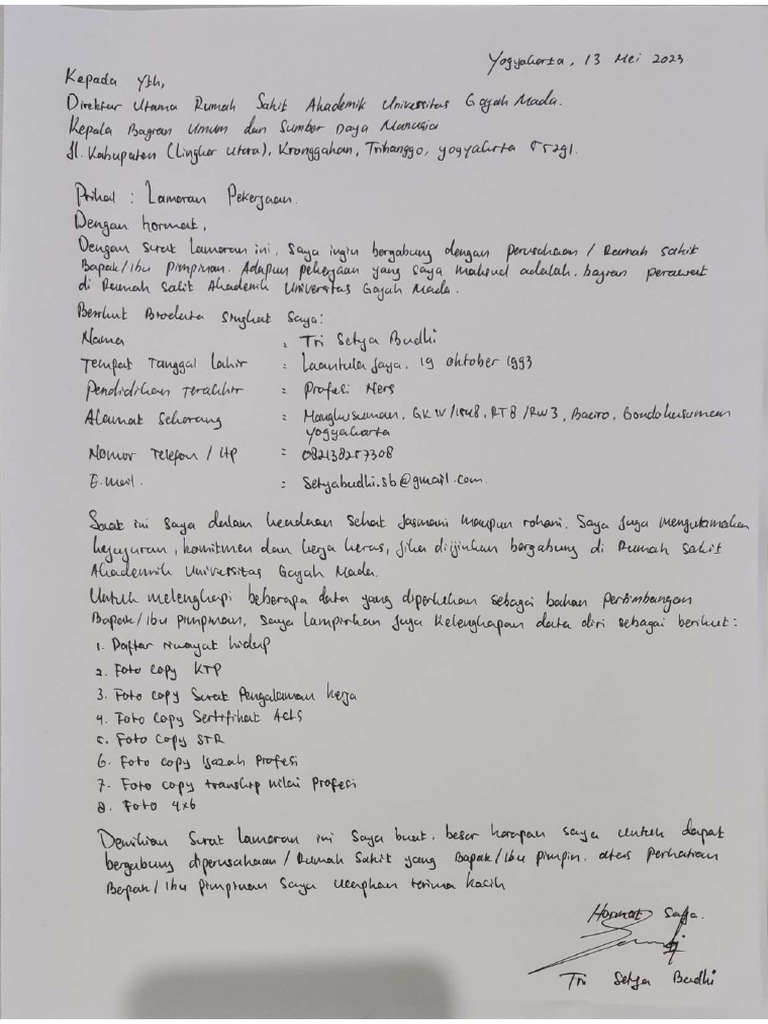 Yogyakarta, 13 Mei 2023
Kepada Yth,
Direktur Utama Rumah Sakit Akademik Universitas Gajah Mada.
Kepala Bagian Umum dan Sumber Daya Manusia
Jl. Kabupaten (Lingkar Utara), Kronggahan, Trihanggo, Yogyakarta 55291.
Prihal : Lamaran Pekerjaan.
Dengan hormat,
Dengan surat lamaran ini, saya ingin bergabung dengan perusahaan / Rumah sakit
Bapak/Ibu Pimpinan. Adapun pekerjaan yang saya maksud adalah, bagian perawat
di Rumah Sakit Akademik Universitas Gajah Mada.
Berikut Biodata singkat saya:
Nama : Tri Setya Budhi
Tempat Tanggal Lahir : Laantula Jaya, 19 Oktober 1993
Pendidikan Terakhir : Profesi Ners
Alamat Sekarang : Mangkusuman, GK IV/1548, RT8/RW3, Baciro, Gondokusuman
Yogyakarta
Nomor Telefon / HP : 082138257308
E.mail. : Setyabudhi.sb@gmail.com.
Saat ini saya dalam keadaan sehat jasmani maupun rohani. Saya juga mengutamakan
kejujuran, komitmen dan kerja keras, jika diijinkan bergabung di Rumah Sakit
Akademik Universitas Gajah Mada.
Untuk melengkapi beberapa data yang diperlukan sebagai bahan Pertimbangan
Bapak/Ibu Pimpinan, saya lampirkan juga kelengkapan data diri sebagai berikut:
1. Daftar riwayat hidup
2. Foto copy KTP
3. Foto copy Surat Pengalaman kerja
4. Foto copy Sertifikat ACLS
5. Foto copy STR
6. Foto copy Ijazah Profesi
7. Foto copy transkrip nilai Profesi
8. Foto 4x6
Demikian surat lamaran ini saya buat, besar harapan saya untuk dapat
bergabung diperusahaan / Rumah Sakit yang Bapak/Ibu pimpin. atas Perhatian
Bapak/Ibu Pimpinan saya ucapkan terima kasih
Hormat saya.
Tri Setya Budhi